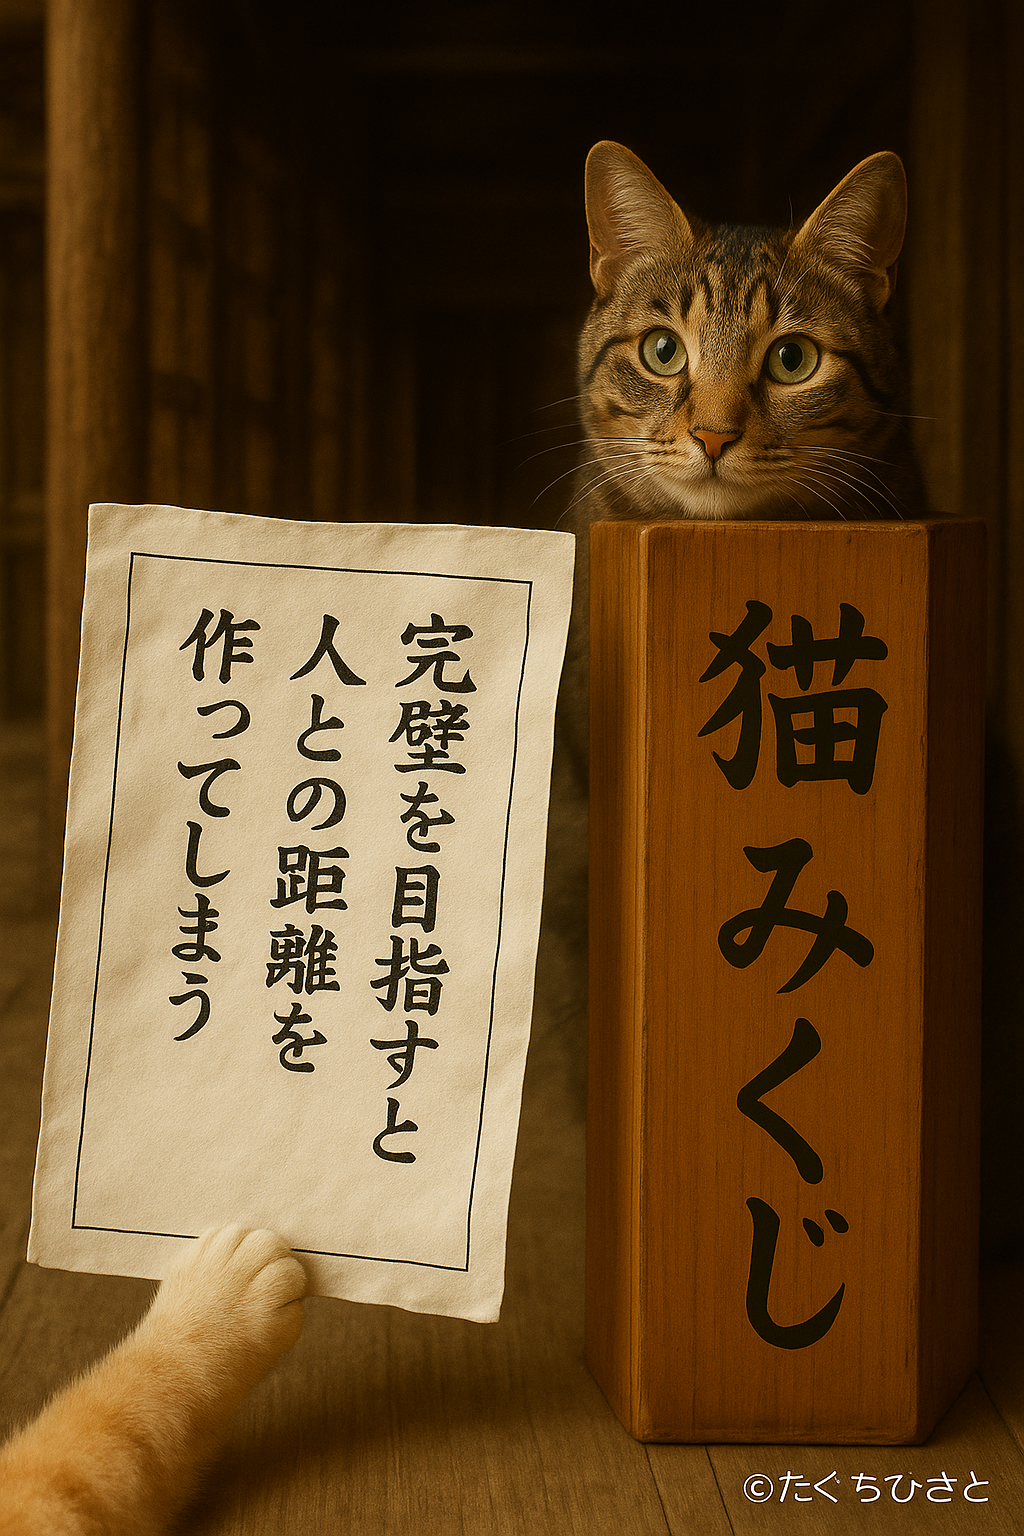 完壁を目指すと
人との距離を
作ってしまう
猫みくじ
©たぐちひさと